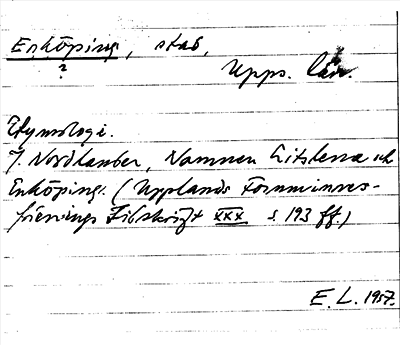 Enköping, stad,
?
Upps. län.
Etymologi.
J. Nordlander, Namnen Litslena och
Enköping. (Upplands Fornminnes-
förenings Tidskrift XXX s. 193 ff.)
E. L. 1957.